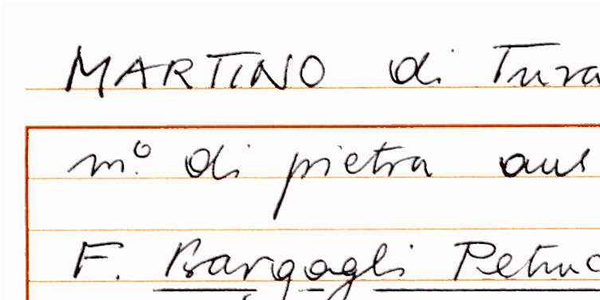 MARTINO di Tura
m.º di pietra
F. Bargagli Petruc